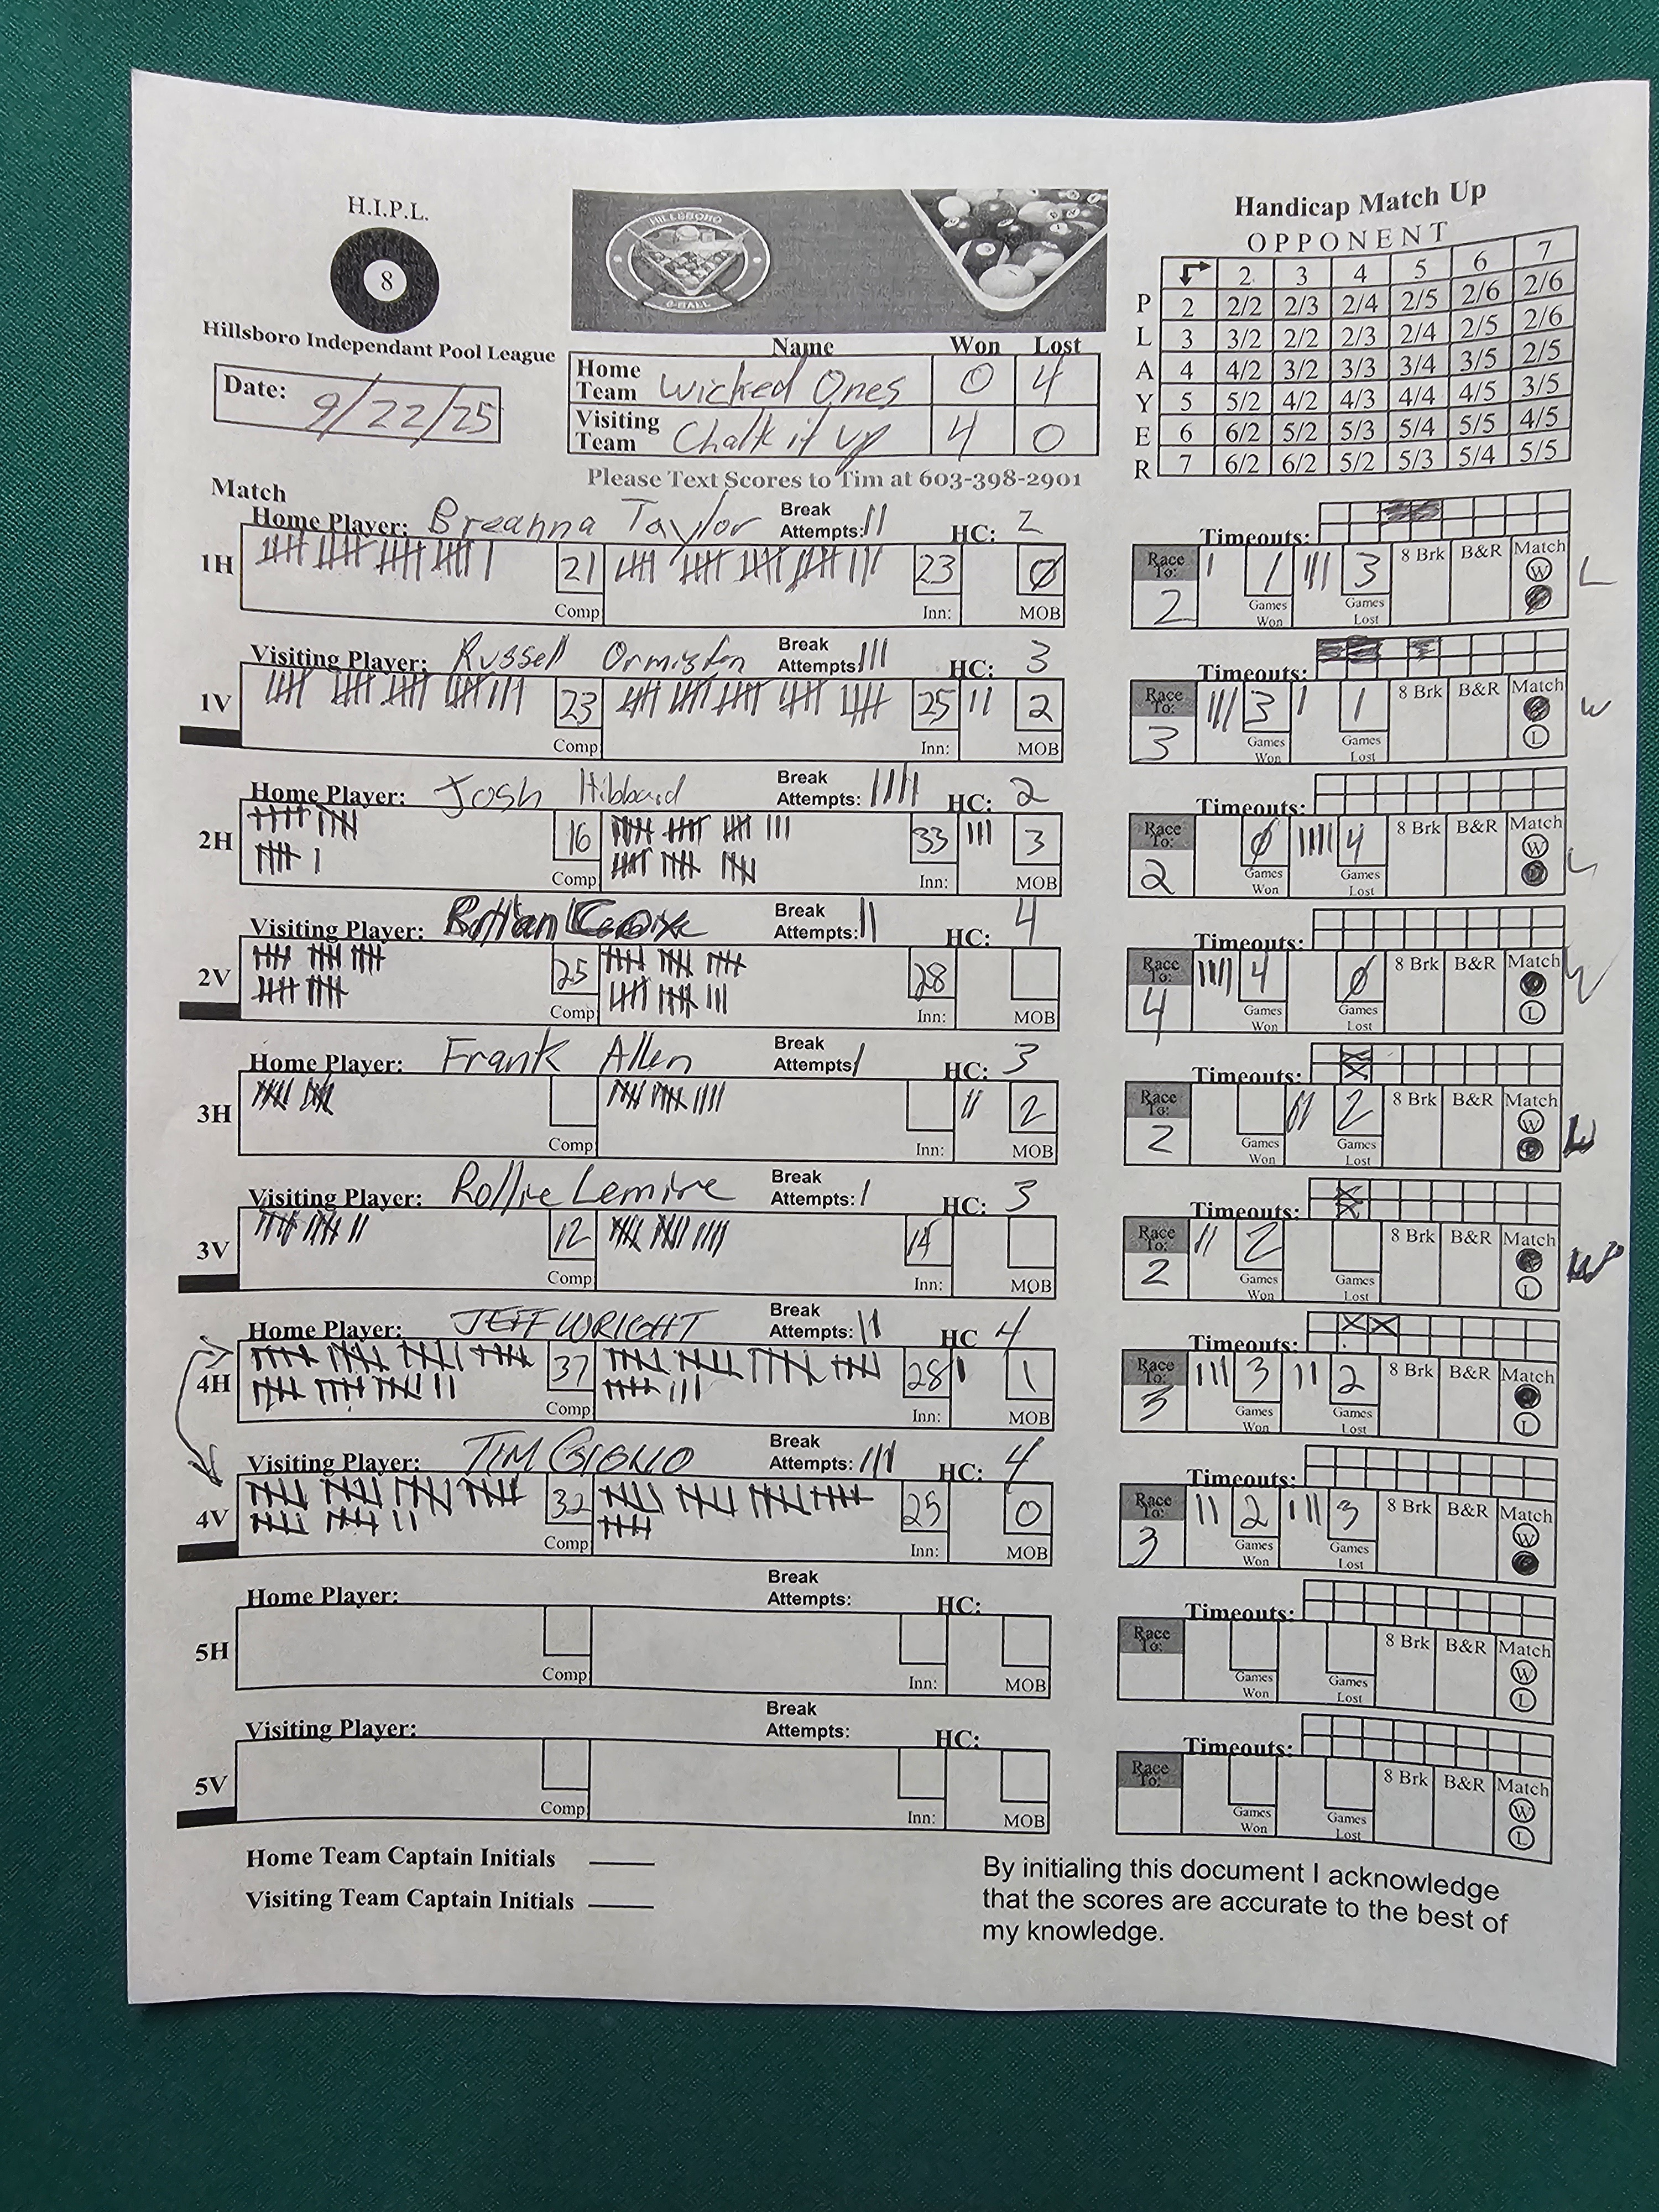 H.I.P.L.
8
Hillsboro Independant Pool League
Date: 9/22/25
HILLSBORO
8-BALL
Name Won Lost
Home Team Wicked Ones 0 4
Visiting Team Chalk it up 4 0
Please Text Scores to Tim at 603-398-2901
Handicap Match Up
OPPONENT
2 3 4 5 6 7
P 2 2/2 2/3 2/4 2/5 2/6 2/6
L 3 3/2 2/2 2/3 2/4 2/5 2/6
A 4 4/2 3/2 3/3 3/4 3/5 2/5
Y 5 5/2 4/2 4/3 4/4 4/5 3/5
E 6 6/2 5/2 5/3 5/4 5/5 4/5
R 7 6/2 6/2 5/2 5/3 5/4 5/5
Match
Home Player: Breanna Taylor Break Attempts: || HC: 2 Timeouts:
1H 21 Comp 23 Inn: Ø MOB Race To: 2 | 1 Games Won ||| 3 Games Lost 8 Brk B&R Match W L
Visiting Player: Russell Ormiston Break Attempts: ||| HC: 3 Timeouts:
1V 23 Comp 25 Inn: || 2 MOB Race To: 3 ||| 3 Games Won | 1 Games Lost 8 Brk B&R Match L W
Home Player: Josh Hibbard Break Attempts: |||| HC: 2 Timeouts:
2H 16 Comp 33 Inn: ||| 3 MOB Race To: 2 Ø Games Won |||| 4 Games Lost 8 Brk B&R Match W L
Visiting Player: Break Attempts: || HC: 4 Timeouts:
2V 25 Comp 28 Inn: MOB Race To: 4 |||| 4 Games Won Ø Games Lost 8 Brk B&R Match L W
Home Player: Frank Allen Break Attempts: | HC: 3 Timeouts:
3H Comp Inn: || 2 MOB Race To: 2 Games Won || 2 Games Lost 8 Brk B&R Match W L
Visiting Player: Rollie Lemire Break Attempts: | HC: 3 Timeouts:
3V 12 Comp 14 Inn: MOB Race To: 2 || 2 Games Won Games Lost 8 Brk B&R Match L W
Home Player: JEFF WRIGHT Break Attempts: || HC 4 Timeouts:
4H 37 Comp 28 Inn: | 1 MOB Race To: 3 ||| 3 Games Won || 2 Games Lost 8 Brk B&R Match L
Visiting Player: TIM Break Attempts: ||| HC: 4 Timeouts:
4V 32 Comp 25 Inn: 0 MOB Race To: 3 || 2 Games Won ||| 3 Games Lost 8 Brk B&R Match W
Home Player: Break Attempts: HC: Timeouts:
5H Comp Inn: MOB Race To: Games Won Games Lost 8 Brk B&R Match W L
Visiting Player: Break Attempts: HC: Timeouts:
5V Comp Inn: MOB Race To: Games Won Games Lost 8 Brk B&R Match W L
Home Team Captain Initials
Visiting Team Captain Initials
By initialing this document I acknowledge
that the scores are accurate to the best of
my knowledge.